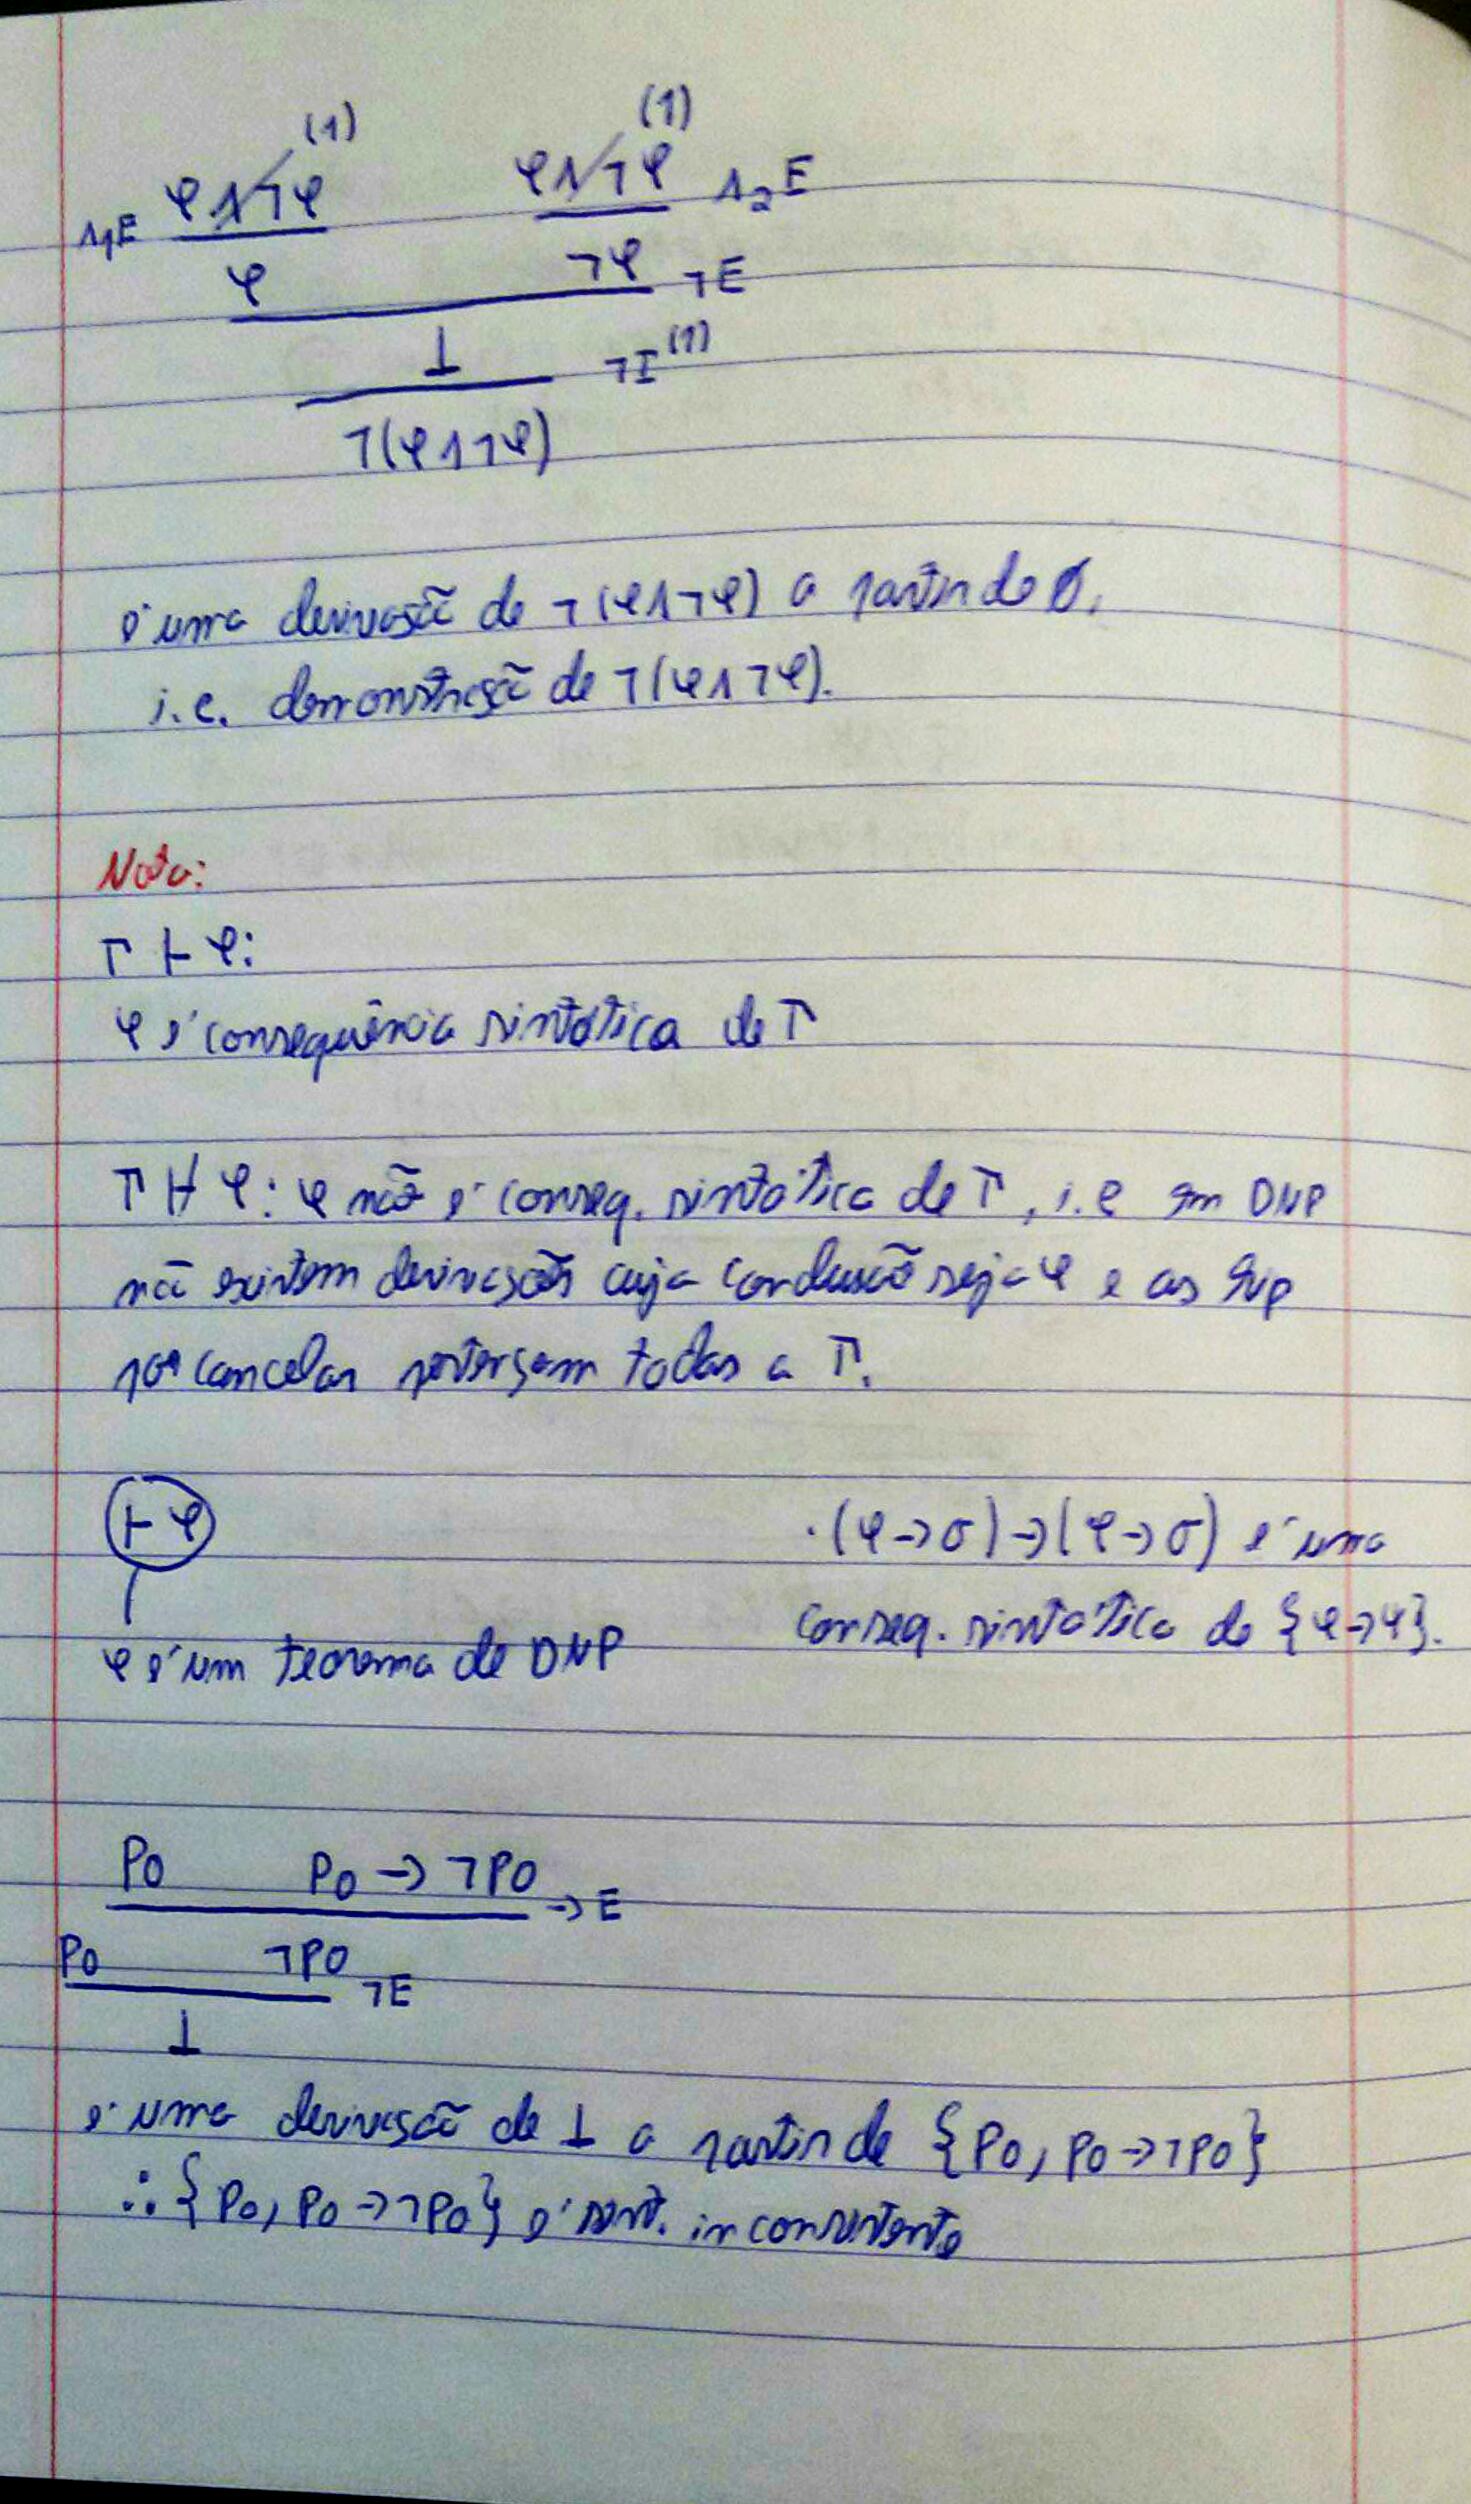 (1) (1)
∧₁E φ∧¬φ φ∧¬φ ∧₂E
φ ¬φ ¬E
⊥ ¬I (1)
¬(φ∧¬φ)
é uma derivação de ¬(φ∧¬φ) a partir de ∅,
i.e. demonstração de ¬(φ∧¬φ).
Nota:
Γ ⊢ φ:
φ é consequência sintática de Γ
Γ ⊬ φ: φ não é conseq. sintática de Γ, i.e em DNP
não existem derivações cuja conclusão seja φ e as Sup
cancelas pertençam todas a Γ.
⊢ φ
φ é um teorema de DNP
·(φ→σ)→(φ→σ) é uma
conseq. sintática de {φ→ψ}.
p0 p0→¬p0 →E
p0 ¬p0 ¬E
⊥
é uma derivação de ⊥ a partir de {p0, p0→¬p0}
∴ {p0, p0→¬p0} é sint. inconsistente